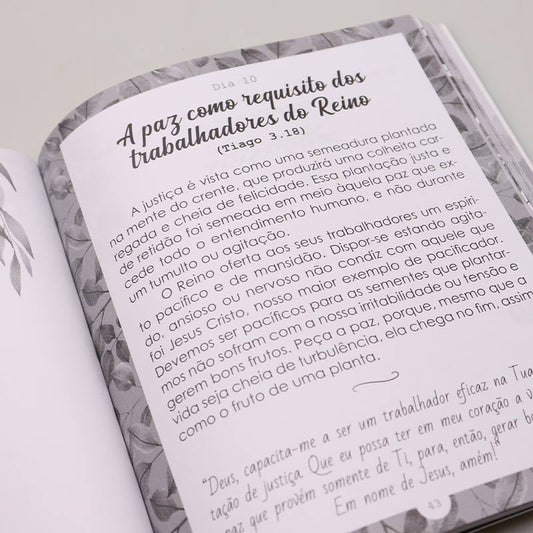 Dia 10
A paz como requisito dos
trabalhadores do Reino
(Tiago 3.18)
A justiça é vista como uma semeadura plantada
na mente do crente, que produzirá uma colheita car-
regada e cheia de felicidade. Essa plantação justa e
de retidão foi semeada em meio àquela paz que ex-
cede todo o entendimento humano, e não durante
um tumulto ou agitação.
O Reino oferta aos seus trabalhadores um espíri-
to pacífico e de mansidão. Dispor-se estando agita-
do, ansioso ou nervoso não condiz com aquele que
foi Jesus Cristo, nosso maior exemplo de pacificador.
Devemos ser pacíficos para as sementes que plantar-
mos não sofram com a nossa irritabilidade ou tensão e
gerem bons frutos. Peça a paz, porque, mesmo que a
vida seja cheia de turbulência, ela chega no fim, assim
como o fruto de uma planta.
"Deus, capacita-me a ser um trabalhador eficaz na Tua
tação de justiça. Que eu possa ter em meu coração a v
paz que provém somente de Ti, para, então, gerar bo
Em nome de Jesus, amém!"
43